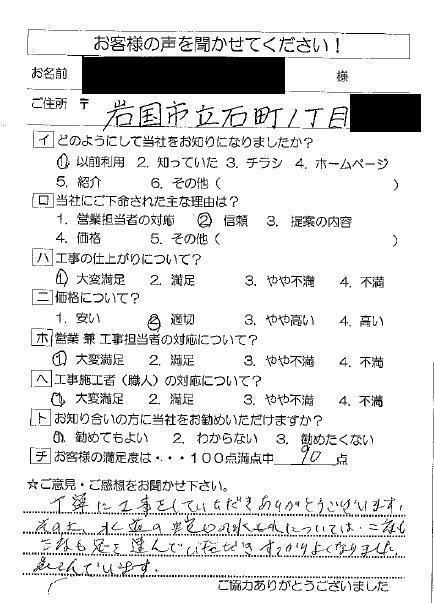 お客様の声を聞かせてください！
お名前 様
ご住所 〒 岩国市立石町1丁目
イ どのようにして当社をお知りになりましたか？
① 以前利用 2. 知っていた 3. チラシ 4. ホームページ
5. 紹介 6. その他（ ）
ロ 当社にご下命された主な理由は？
1. 営業担当者の対応 ② 信頼 3. 提案の内容
4. 価格 5. その他（ ）
ハ 工事の仕上がりについて？
① 大変満足 2. 満足 3. やや不満 4. 不満
ニ 価格について？
1. 安い ② 適切 3. やや高い 4. 高い
ホ 営業 兼 工事担当者の対応について？
① 大変満足 2. 満足 3. やや不満 4. 不満
ヘ 工事施工者（職人）の対応について？
① 大変満足 2. 満足 3. やや不満 4. 不満
ト お知り合いの方に当社をお勧めいただけますか？
① 勧めてもよい 2. わからない 3. 勧めたくない
チ お客様の満足度は・・・100点満点中 90 点
☆ご意見・ご感想をお聞かせ下さい。
丁寧に工事をしていただきありがとうございます。
水道の水もれについては、二度も
三度も足を運んでいただきすっかりよくなりました。
よろこんでいます。
ご協力ありがとうございました